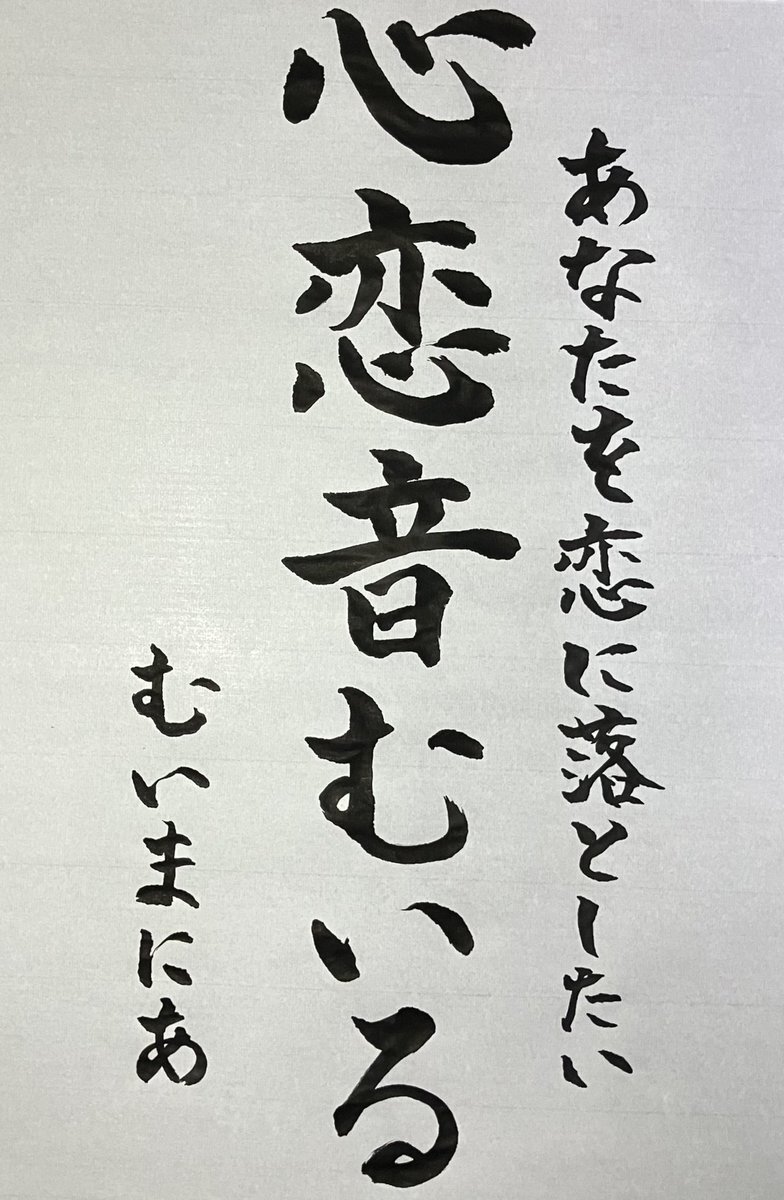 あなたを恋に落としたい
心恋音むいる
むいまにあ